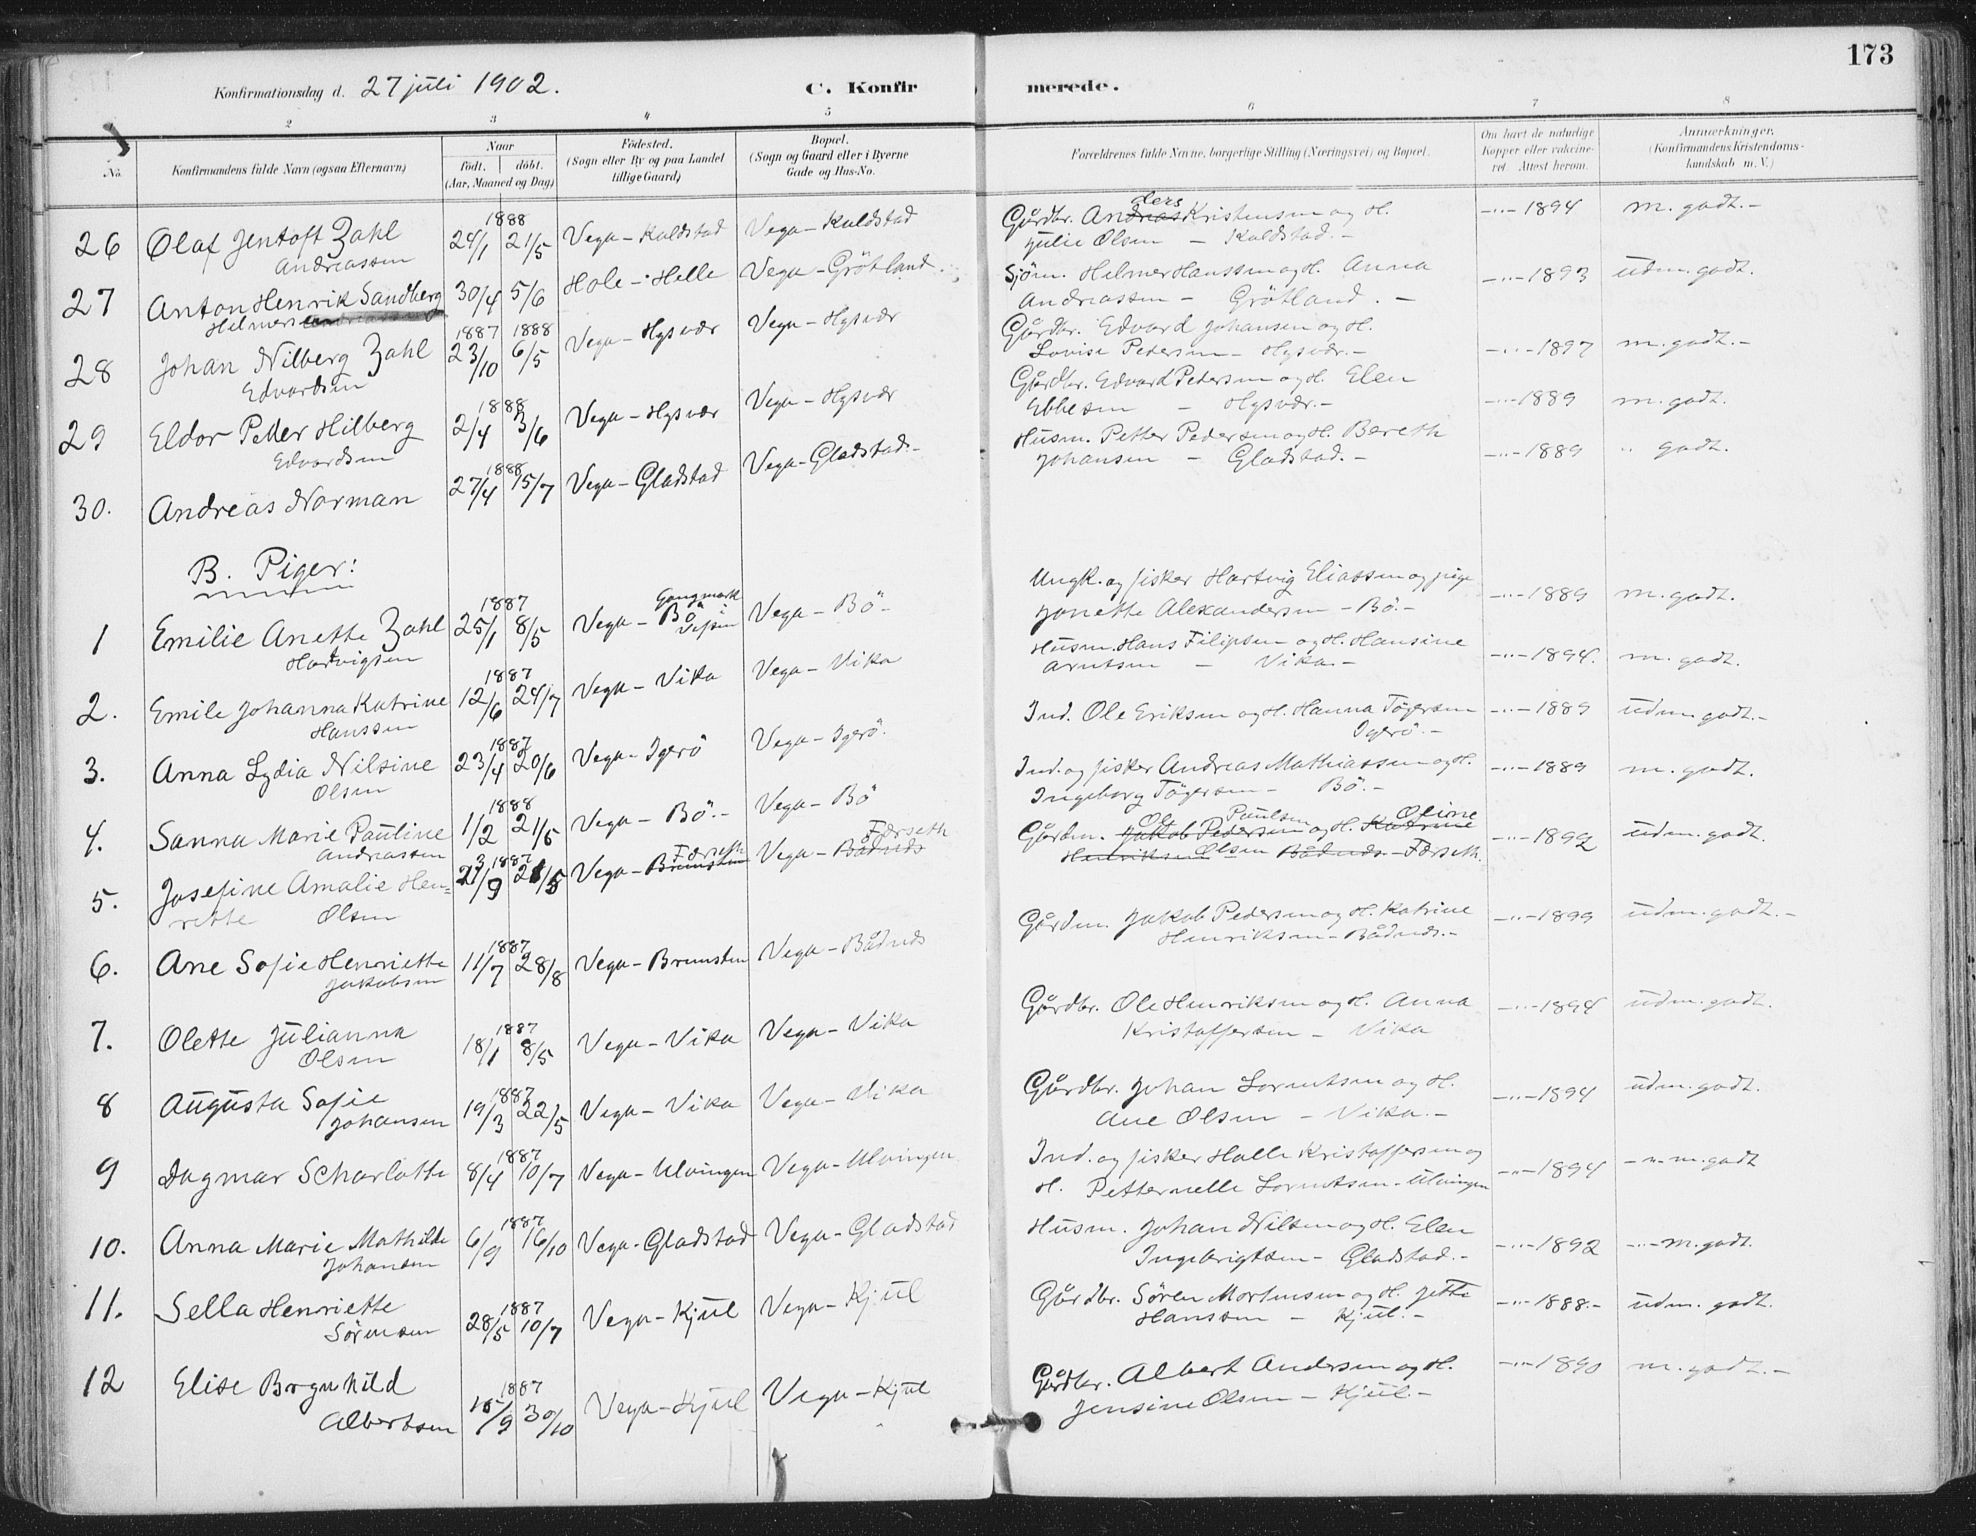 173
Konfirmationsdag d. 27 juli 1902. C. Konfirmerede.
2 3 4 5 6 7 8
No. Konfirmandens fulde Navn (ogsaa Efternavn) Naar födt. döbt. (Aar, Maaned og Dag) Födested. (Sogn eller By og paa Landet tillige Gaard) Bopæl. (Sogn og Gaard eller i Byerne Gade og Hus-No. Forældrenes fulde Navne, borgerlige Stilling (Næringsvei) og Bopæl. Om havt de naturlige Kopper eller vakcineret. Attest herom. Anmærkninger. (Konfirmandens Kristendomskundskab m. V.)
26 Olaf Jentoft Zahl Andreassen 1888 24/1 21/5 Vega - Kuldstad Vega - Kuldstad Gårdbr. Anders Kristensen og H. Julie Olsen - Kuldstad. - -"- 1894 m. godt. -
27 Anton Henrik Sandberg Helmersen 30/4 5/6 Hole - Helle Vega - Grötland. Sjöm. Helmer Hanssen og H. Anna Andreassen - Grötland. - -"- 1893 udm. godt.
28 Johan Nilberg Zahl Edvardsen 1887 1888 23/10 6/5 Vega - Hysvær Vega - Hysvær Gårdbr. Edvard Johansen og H. Lovise Pedersen - Hysvær. - -"- 1897 m. godt. -
29 Eldor Petter Hilberg Edvardsen 1888 2/4 3/6 Vega - Hysvær Vega - Hysvær Gårdbr. Edvard Pedersen og H. Elen Ebbesen - Hysvær. - -"- 1889 m. godt.
30. Andreas Norman 1888 27/4 15/7 Vega - Gladstad Vega - Gladstad. - Husm. Petter Pedersen og H. Bereth Johansen - Gladstad. - -"- 1889 " godt.
B. Piger:
1 Emilie Anette Zahl Hartvigsen 1887 25/1 8/5 Vega - Bö Vega - Bö - Ungk. og fisker Hartvig Eliassen og pige Jonette Alexandersen - Bö. - -"- 1889 m. godt.
2. Emile Johanna Katrine Hanssen 1887 12/6 24/7 Vega - Vika Vega - Vika Husm. Hans Filipsen og H. Hansine Arntsen - Vika. - -"- 1894. m. godt.
3. Anna Lydia Nilsine Olsen 1887 23/4 20/6 Vega - Igerö Vega - Igerö. Ind. Ole Eriksen og H. Hanna Tögersen Igerö. - -"- 1889 udm. godt. -
4. Sanna Marie Pauline Andreassen 1888 1/2 21/5 Vega - Bö. - Vega - Bö Ind. og fisker Andreas Mathiassen og H. Ingeborg Tögersen - Bö. - -"- 1889 m. godt.
5. Josefine Amalie Henrette Olsen 1887 Vega - Brunsten Færseth Vega - Bådnds Færseth Gårdm. Jakob Pedersen Ole Paulsen og H. Katrine Oline Henriksen Olsen Bådnds - Færseth. -"- 1892 udm. godt
6. Ane Sofie Henriette Jakobsen 1887 11/7 28/8 Vega - Brunsten Vega - Bådnds Gårdm. Jakob Pedersen og H. Katrine Henriksen - Bådnds. - -"- 1899 udm. godt. -
7. Olette Julianna Olsen 1887 18/1 8/5 Vega - Vika Vega - Vika Gårdbr. Ole Henriksen og H. Anna Kristoffersen - Vika -"- 1894 udm. godt.
8 Augusta Sofie Johansen 1887 19/3 22/5 Vega - Vika Vega - Vika Gårdbr. Johan Lorentsen og H. Ane Olsen - Vika. - -"- 1894 udm. godt.
9 Dagmar Scharlotte 1887 8/4 10/7 Vega - Ulvingen Vega - Ulvingen. Ind. og fisker Halle Kristoffersen og H. Petternelle Lorentsen - Ulvingen -"- 1894 -"- m. godt
10. Anna Marie Mathilde Johansen 1887 6/9 16/10 Vega - Gladstad Vega - Gladstad Husm. Johan Nilsen og H. Elen Ingebrigtsen - Gladstad. - -"- 1892 -"- m. godt.
11. Sella Henriette Sörensen 1887 28/5 10/7 Vega - Kjul Vega - Kjul Gårdbr. Sören Mortensen og H. Jette Hanssen - Kjul. - -"- 1888. - udm. godt.
12 Elise Brgnhild Albertsen 1887 15/9 30/10 Vega - Kjul Vega - Kjul Gårdbr. Albert Andersen og H. Jensine Olsen - Kjul. - -"- 1890 m. godt. -